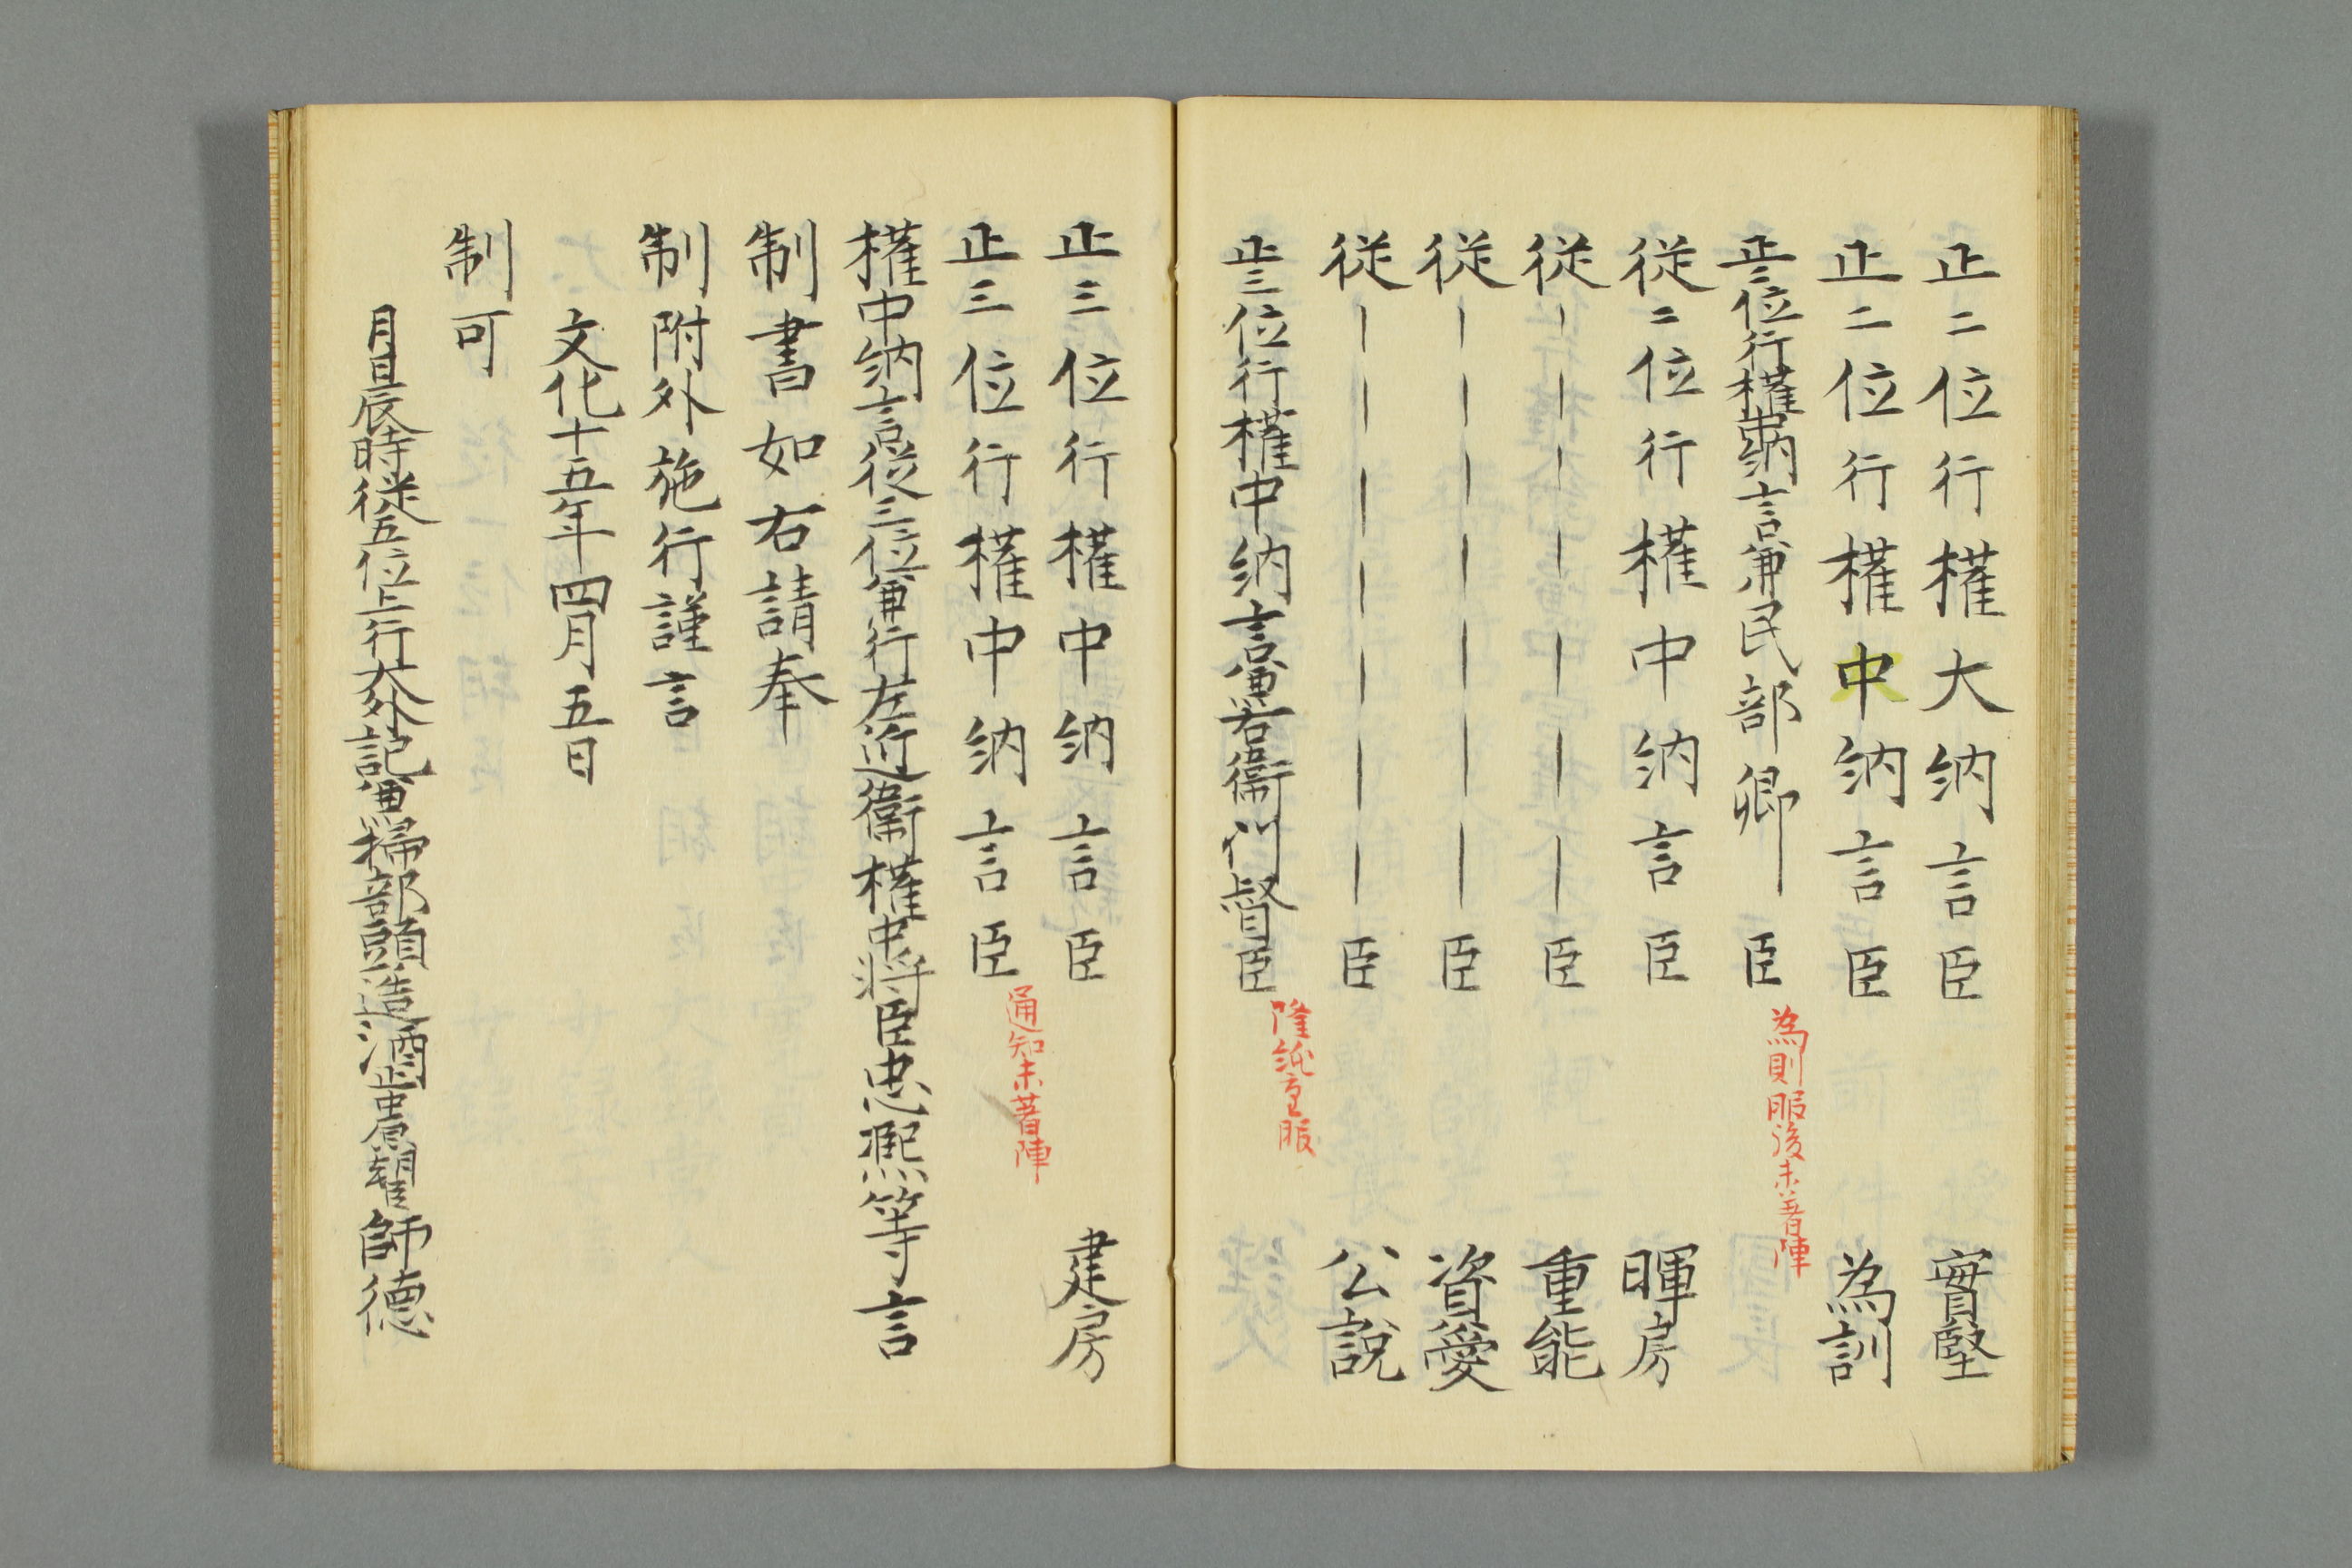 正二位行權大納言臣 實堅
正二位行權中納言臣 為訓
正二位行權中納言兼民部卿｜臣 為則服後未著陣
從二位行權中納言臣 暉房
從｜｜｜｜｜｜臣 重能
從｜｜｜｜｜｜臣 資愛
從｜｜｜｜｜｜｜臣 公說
正三位行權中納言兼右衛門督臣 隆純重服
正三位行權中納言臣 建房
正三位行權中納言臣 通知未著陣
權中納言從三位兼行左近衛權中將臣忠熈等言
制書如右請奉
制附外施行謹言
文化十五年四月五日
制可
月日辰時從五位上行大外記兼掃部頭造酒正中原朝臣師德